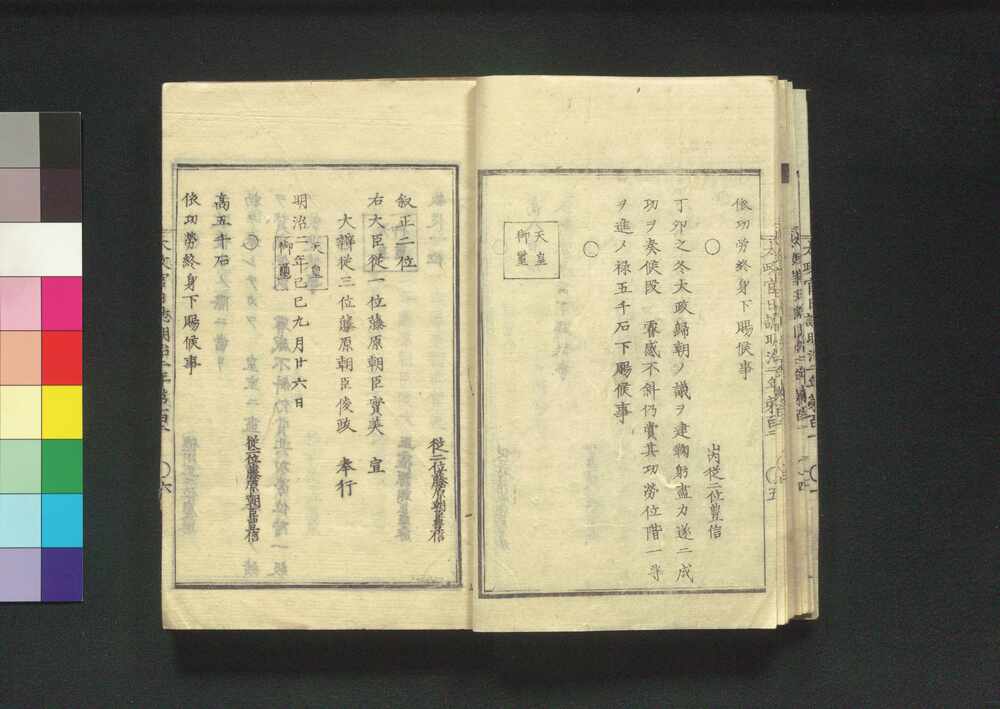 依功労終身下賜候事
○
山内従二位豊信
丁卯之冬大政歸朝ノ議ヲ建鞠躬盡力遂ニ成
功ヲ奏候段　叡感不斜仍賞其功労位階一等
ヲ進メ禄五千石下賜候事
○
天皇
御璽
従二位藤原朝臣豊信
叙正二位
右大臣従一位藤原朝臣實美　宣
大辨従三位藤原朝臣俊政　奉行
天皇
御璽
明治二年己巳九月廿六日
○
従二位藤原朝臣豊信
高五千石
依功労終身下賜候事